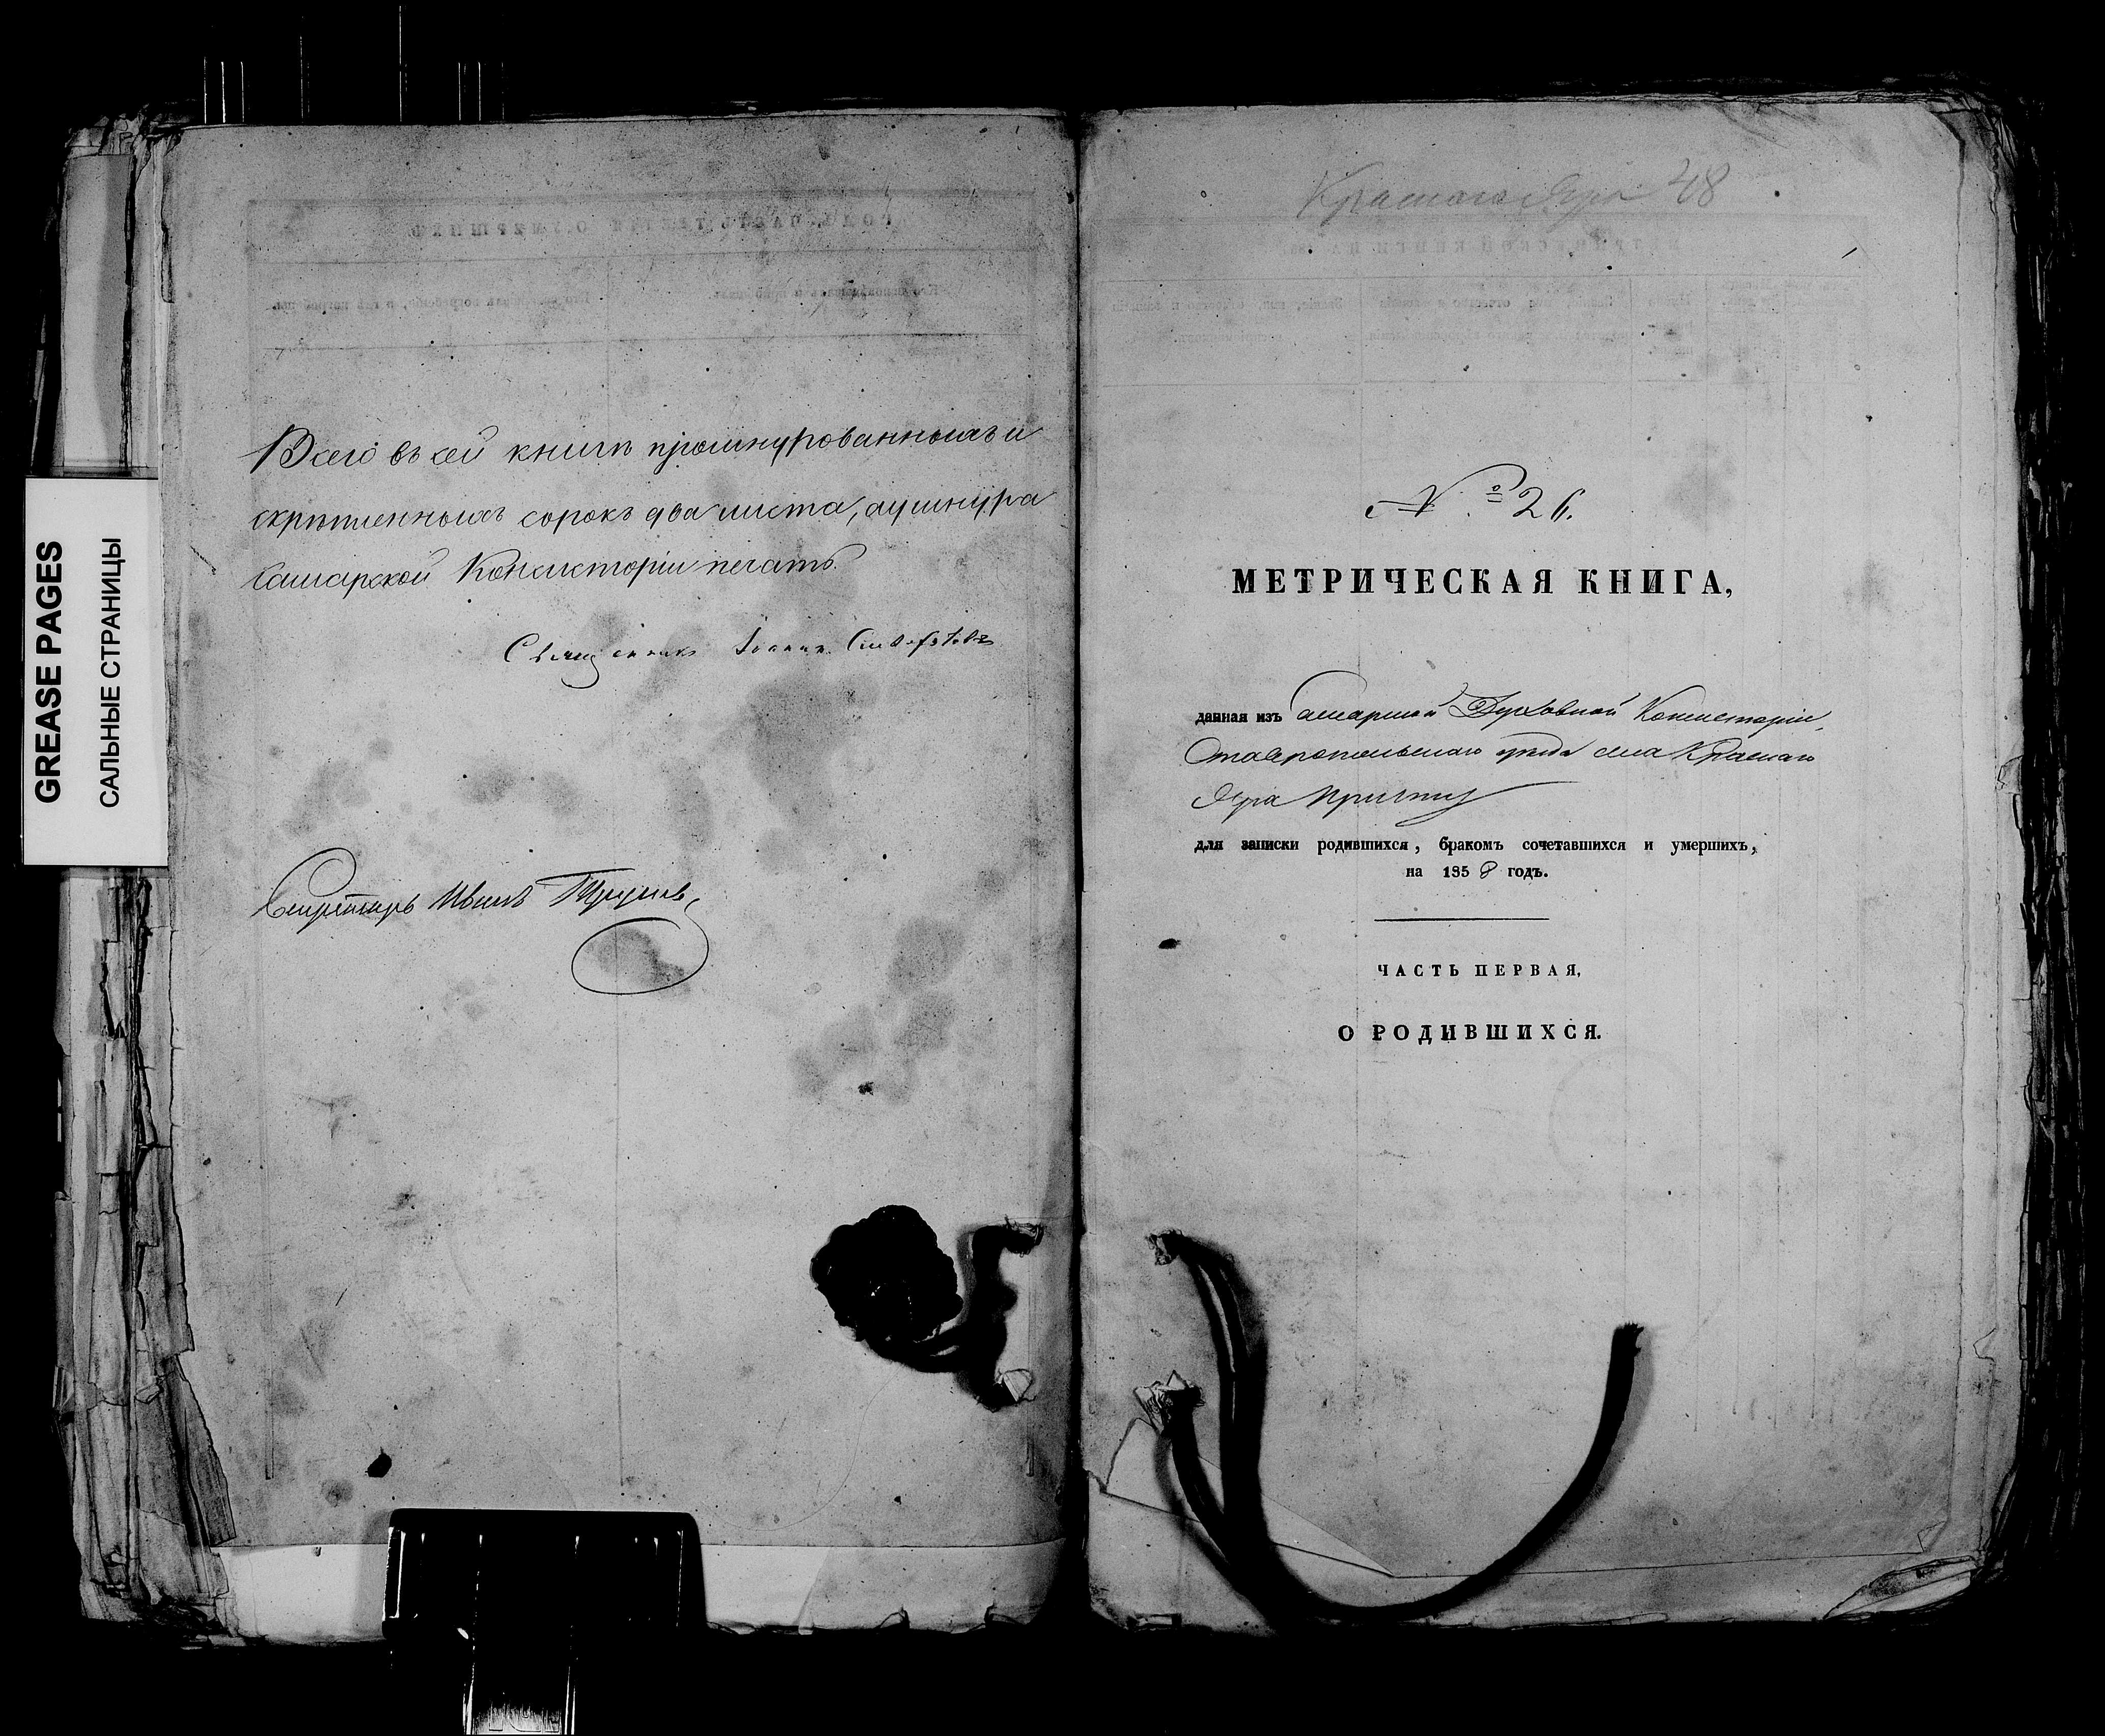 GREASE PAGES
САЛЬНЫЕ СТРАНИЦЫ
Всего въ сей книгѣ прошнурованныхъ и
скрѣпленныхъ сорокъ два листа, а у шнура
Самарской Консисторіи печать.
Священникъ Іоаннъ
Секретарь Иванъ
Краснаго Яра 48
№ 26.
МЕТРИЧЕСКАЯ КНИГА,
данная изъ Самарской Духовной Консисторіи,
Ставропольскаго уѣзда села Краснаго
Яра причту
для записки родившихся, бракомъ сочетавшихся и умершихъ,
на 1858 годъ.
ЧАСТЬ ПЕРВАЯ,
О РОДИВШИХСЯ.